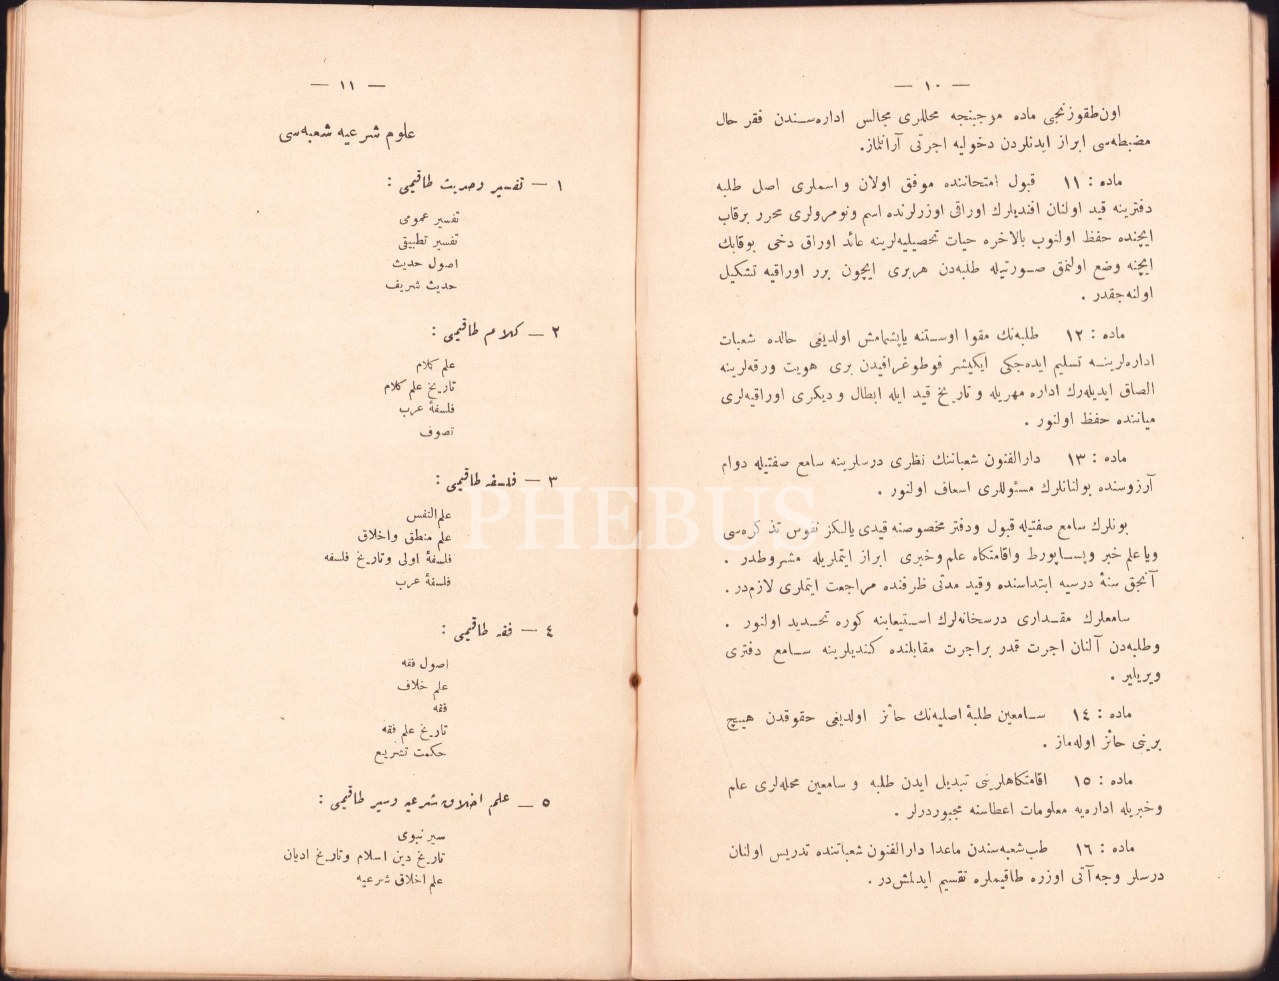 — ١٠ —
اون‌طقوزنجی ماده موجبنجه محللری مجالس اداره‌سندن فقر حال
مضبطه‌سی ابراز ایدنلردن دخولیه اجرتی آرانلماز.
ماده : ١١ قبول امتحاننده موفق اولان و اسملری اصل طلبه
دفترینه قید اولنان افندیلرك اوراقی اوزرلرنده اسم ونومرولری محرر برقاب
ایچنده حفظ اولنوب بالاخره حیات تحصیلیه‌لرینه عائد اوراق دخی بوقابك
ایچنه وضع اولنمق صورتیله طلبه‌دن هربری ایچون برر اوراقیه تشکیل
اولنه‌جقدر .
ماده : ١٢ طلبه‌نك مقوا اوستنه یاپشمامش اولدیغی حالده شعبات
اداره‌لرینه تسلیم ایده‌جکی ایکیشر فوطوغرافیدن بری هویت ورقه‌لرینه
الصاق ایدیله‌رك اداره مهریله و تاریخ قید ایله ابطال و دیکری اوراقیه‌لری
میاننده حفظ اولنور .
ماده : ١٣ دارالفنون شعباتنك نظری درسلرینه سامع صفتیله دوام
آرزوسنده بولنانلرك مسئوللری اسعاف اولنور .
بونلرك سامع صفتیله قبول ودفتر مخصوصنه قیدی یالکز نفوس تذکره‌سی
ویا علم خبر وپساپورط واقامتکاه علم وخبری ابراز ایتملریله مشروطدر .
آنجق سنهٔ درسیه ابتداسنده وقید مدتی ظرفنده مراجعت ایتملری لازم‌در .
سامعلرك مقداری درسخانه‌لرك استیعابنه کوره تحدید اولنور .
وطلبه‌دن آلنان اجرت قدر براجرت مقابلنده کندیلرینه سامع دفتری
ویریلیر .
ماده : ١٤ سامعین طلبهٔ اصلیه‌نك حائز اولدیغی حقوقدن هیچ
برینی حائز اوله‌ماز .
ماده : ١٥ اقامتکاهلرینی تبدیل ایدن طلبه و سامعین محله‌لری علم
وخبریله اداره‌یه معلومات اعطاسنه مجبوردرلر .
ماده : ١٦ طب‌شعبه‌سندن ماعدا دارالفنون شعباتنده تدریس اولنان
درسلر وجه آتی اوزره طاقیملره تقسیم ایدلمش‌در .
— ١١ —
علوم شرعیه شعبه‌سی
١ — تفسیر وحدیث طاقیمی :
تفسیر عمومی
تفسیر تطبیقی
اصول حدیث
حدیث شریف
٢ — کلام طاقیمی :
علم کلام
تاریخ علم کلام
فلسفهٔ عرب
تصوف
٣ — فلسفه طاقیمی :
علم‌النفس
علم منطق واخلاق
فلسفهٔ اولی وتاریخ فلسفه
فلسفهٔ عرب
٤ — فقه طاقیمی :
اصول فقه
علم خلاف
فقه
تاریخ علم فقه
حکمت تشریع
٥ — علم اخلاق شرعیه وسیر طاقیمی :
سیر نبوی
تاریخ دین اسلام وتاریخ ادیان
علم اخلاق شرعیه
PHEBUS